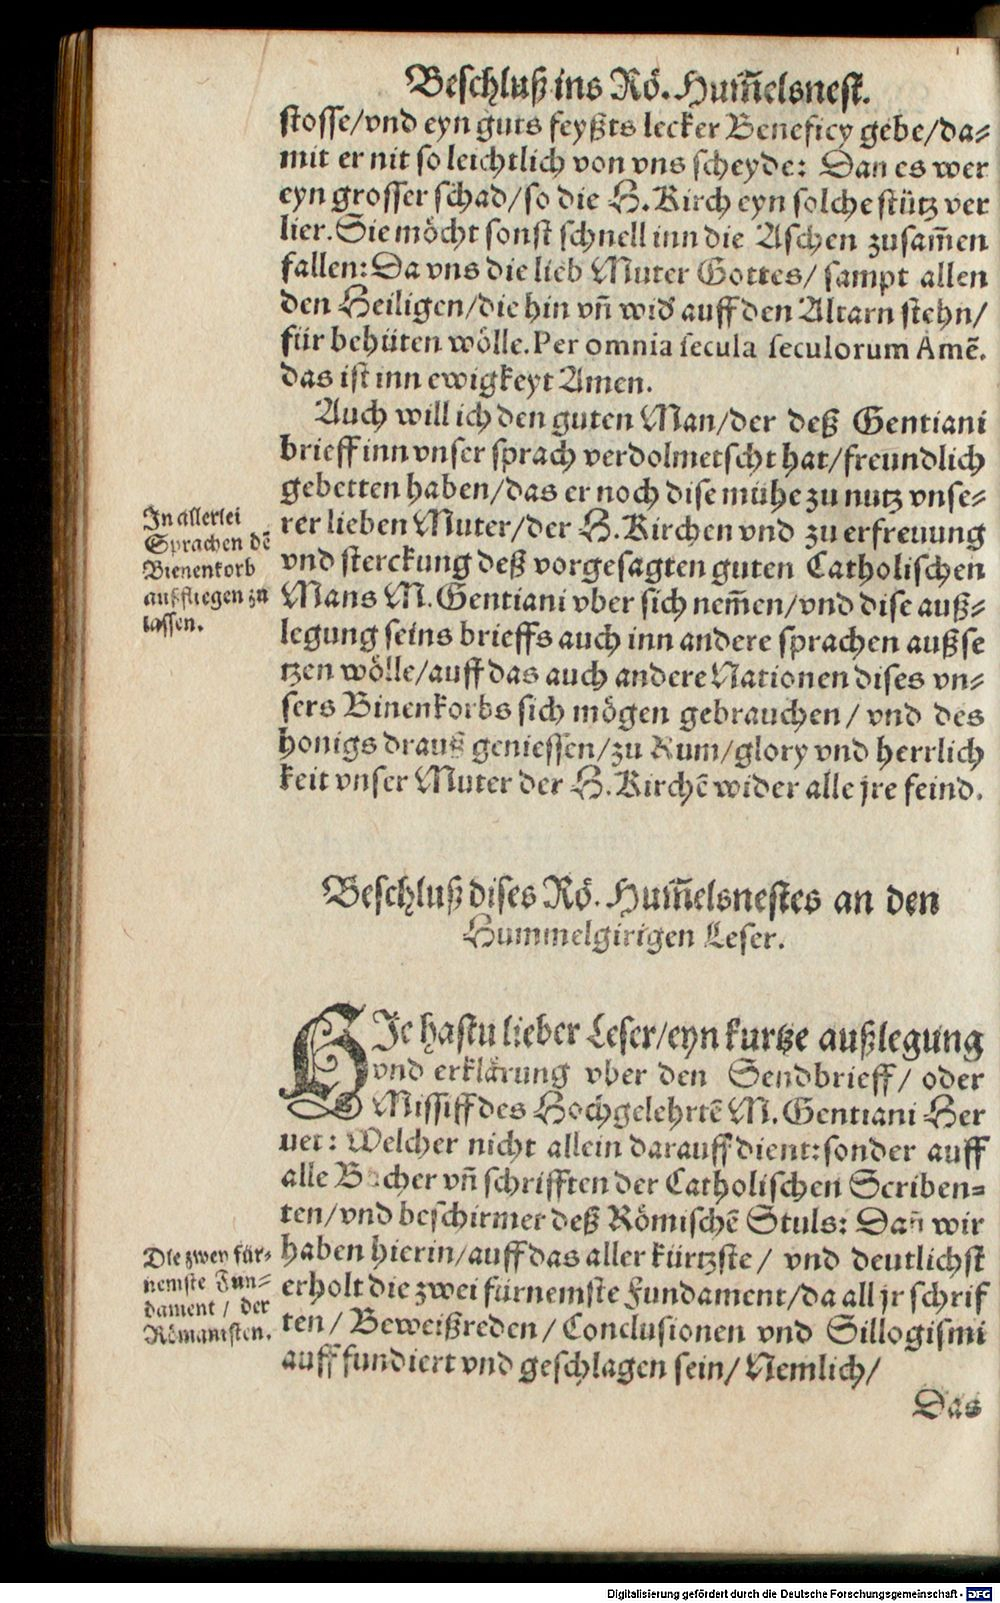 Beschluß ins Rö. Hum̃elsnest.
stosse/vnd eyn guts feyßts lecker Beneficy gebe/da-
mit er nit so leichtlich von vns scheyde: Dan es wer
eyn grosser schad/so die H. Kirch eyn solche stütz ver
lier. Sie möcht sonst schnell inn die Aschen zusam̃en
fallen: Da vns die lieb Muter Gottes/ sampt allen
den Heiligen/die hin vñ wid' auff den Altarn stehn/
für behüten wölle. Per omnia secula seculorum Amẽ.
das ist inn ewigkeyt Amen.
Auch will ich den guten Man/der deß Gentiani
brieff inn vnser sprach verdolmetscht hat/freundlich
gebetten haben/das er noch dise mühe zu nutz vnse-
rer lieben Muter/der H. Kirchen vnd zu erfreuung
vnd sterckung deß vorgesagten guten Catholischen
Mans M. Gentiani vber sich nem̃en/vnd dise auß-
legung seins brieffs auch inn andere sprachen außse
tzen wölle/auff das auch andere Nationen dises vn-
sers Binenkorbs sich mögen gebrauchen/ vnd des
honigs drauß geniessen/zu Rum/glory vnd herrlich
keit vnser Muter der H. Kirchẽ wider alle jre feind.
In allerlei
Sprachen dẽ
Bienenkorb
außfliegen zu
lassen.
Beschluß dises Rö. Hum̃elsnestes an den
Hummelgirigen Leser.
HIe hastu lieber Leser/eyn kurtze außlegung
vnd erklärung vber den Sendbrieff/ oder
Missiff des Hochgelehrtẽ M. Gentiani Her
uet: Welcher nicht allein darauff dient: sonder auff
alle Bücher vñ schrifften der Catholischen Scriben-
ten/vnd beschirmer deß Römischẽ Stuls: Dañ wir
haben hierin/auff das aller kürtzste/ vnd deutlichst
erholt die zwei fürnemste Fundament/da all jr schrif
ten/ Beweißreden/ Conclusionen vnd Sillogismi
auff fundiert vnd geschlagen sein/ Nemlich/
Die zwey für-
nemste Fun-
dament/ der
Römanisten.
Das
Digitalisierung gefördert durch die Deutsche Forschungsgemeinschaft - DFG